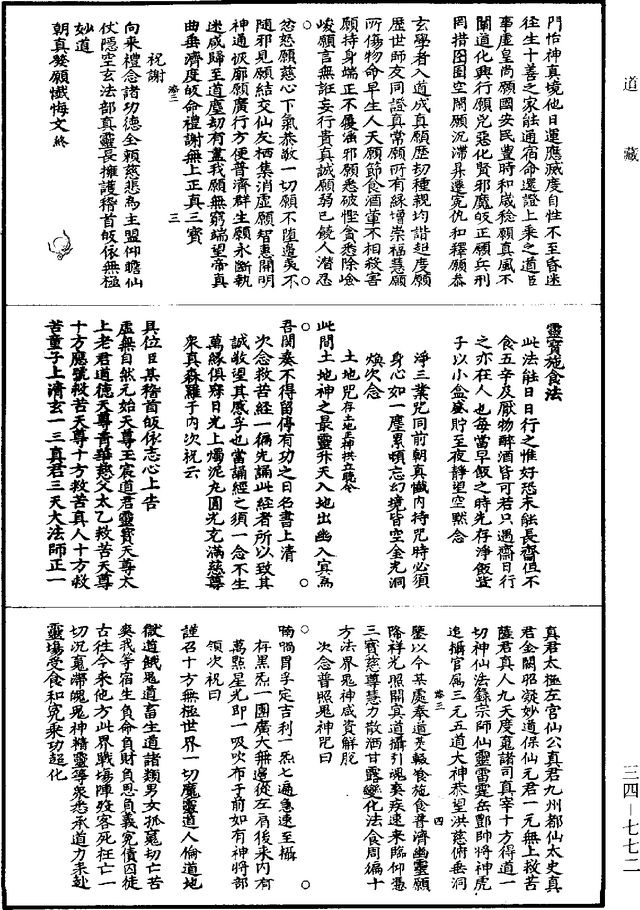 道藏
門怡神真境他日運應滅度自性不至昏迷
徑生十善之家能通宿命還證上乘之道臣
事虛皇尚願國安民豊時和歲稔願真風不
闡道化興行願兇惡化賢邪魔皈正願兵刑
罔措囹圄空閑願沉滯昇遷寃仇和釋願慕
玄學者入道成真願歷劫種親均諧起度願
歷世師友同證真常願所有緣增崇福慧願
所傷物命早生人天願節食酒葷不相殺害
願持身端正不履滛邪願悉破慳貪悉除嶮
峻願言無誑妄行貴真誠願弱己饒人潜忍
忿怒願慈心下氣恭敬一切願不墮邊夷不
隨邪見願結交仙友栖集消虛願智惠開明
神通恢廓願廣行方便普濟群生願永斷執
迷咸歸至道塵劫有盡我願無窮端望帝真
曲垂濟度皈命禮謝無上正真三寳
祝謝
向来禮念諸功德全頼慈悲為主盟仰瞻仙
仗隱空玄法部真靈長擁護稽首皈依無極
妙道
朝真發願懺悔文終
靈寳施食法
此法能日日行之惟好恐未能長齋但不
食五辛及厭物醉酒皆可若只遇齋日行
之亦在人也每當早飯之時先存淨飯些
子以小盒盛貯至夜靜望空黙念
淨三業咒同前朝真懺内持咒時必須
身心如一塵累頓忘幻境皆空金光洞
煥次念
土地咒存土地正神拱立聽令
此間土地神之最靈升天入地出幽入冥為
吾関奏不得留停有功之日名書上清
次念救苦經一徧先誦此經者所以致其
誠敬望其感孚也當誦經之須一念不生
萬緣俱寂日光上燭泥丸圓光充滿慈尊
衆真森羅子内次祝云
具位臣某稽首皈依志心上告
虛無自然元始天尊玉宸道君靈寳天尊太
上老君道德天尊青華慈父太乙救苦天尊
十方應號救苦天尊十方救苦真人十方救
苦童子上清玄一三真君三天大法師正一
真君太極左宮仙公真君九州都仙太史真
君金闕昭凝妙道保仙元君一元無上救苦
薩君真人九天度冤諸司真宰十方得道一
切神仙法籙宗師仙靈雷霆岳酆帥將神虎
追攝官屬三元五道大神恭望洪慈俯垂洞
鑒以今某處奉道某輒飯施食普濟幽靈願
降祥光照開冥道攝引魂爽疾速来臨仰憑
三寳慈尊慧力散洒甘露變化法食周徧十
方法界鬼神咸資解脫
次念普照鬼神咒曰
唵啒胃孚定吉利一炁七遍急速至攝
存黑炁一團廣大無邊從左肩後来内有
萬點星光即一吸吹布子前如有神將部
領次祝曰
謹召十方無極世界一切魔靈道人倫道地
獄道餓鬼道畜生道諸類男女孤冤切亡苦
爽我等宿生負命負財負恩負義寃債囚徒
古徃今来他方此界戰場陣歿客死狂亡一
切沉冤滯魄鬼神精靈等衆悉承道力来赴
靈塲受食和寃乘功超化
三四—七七二